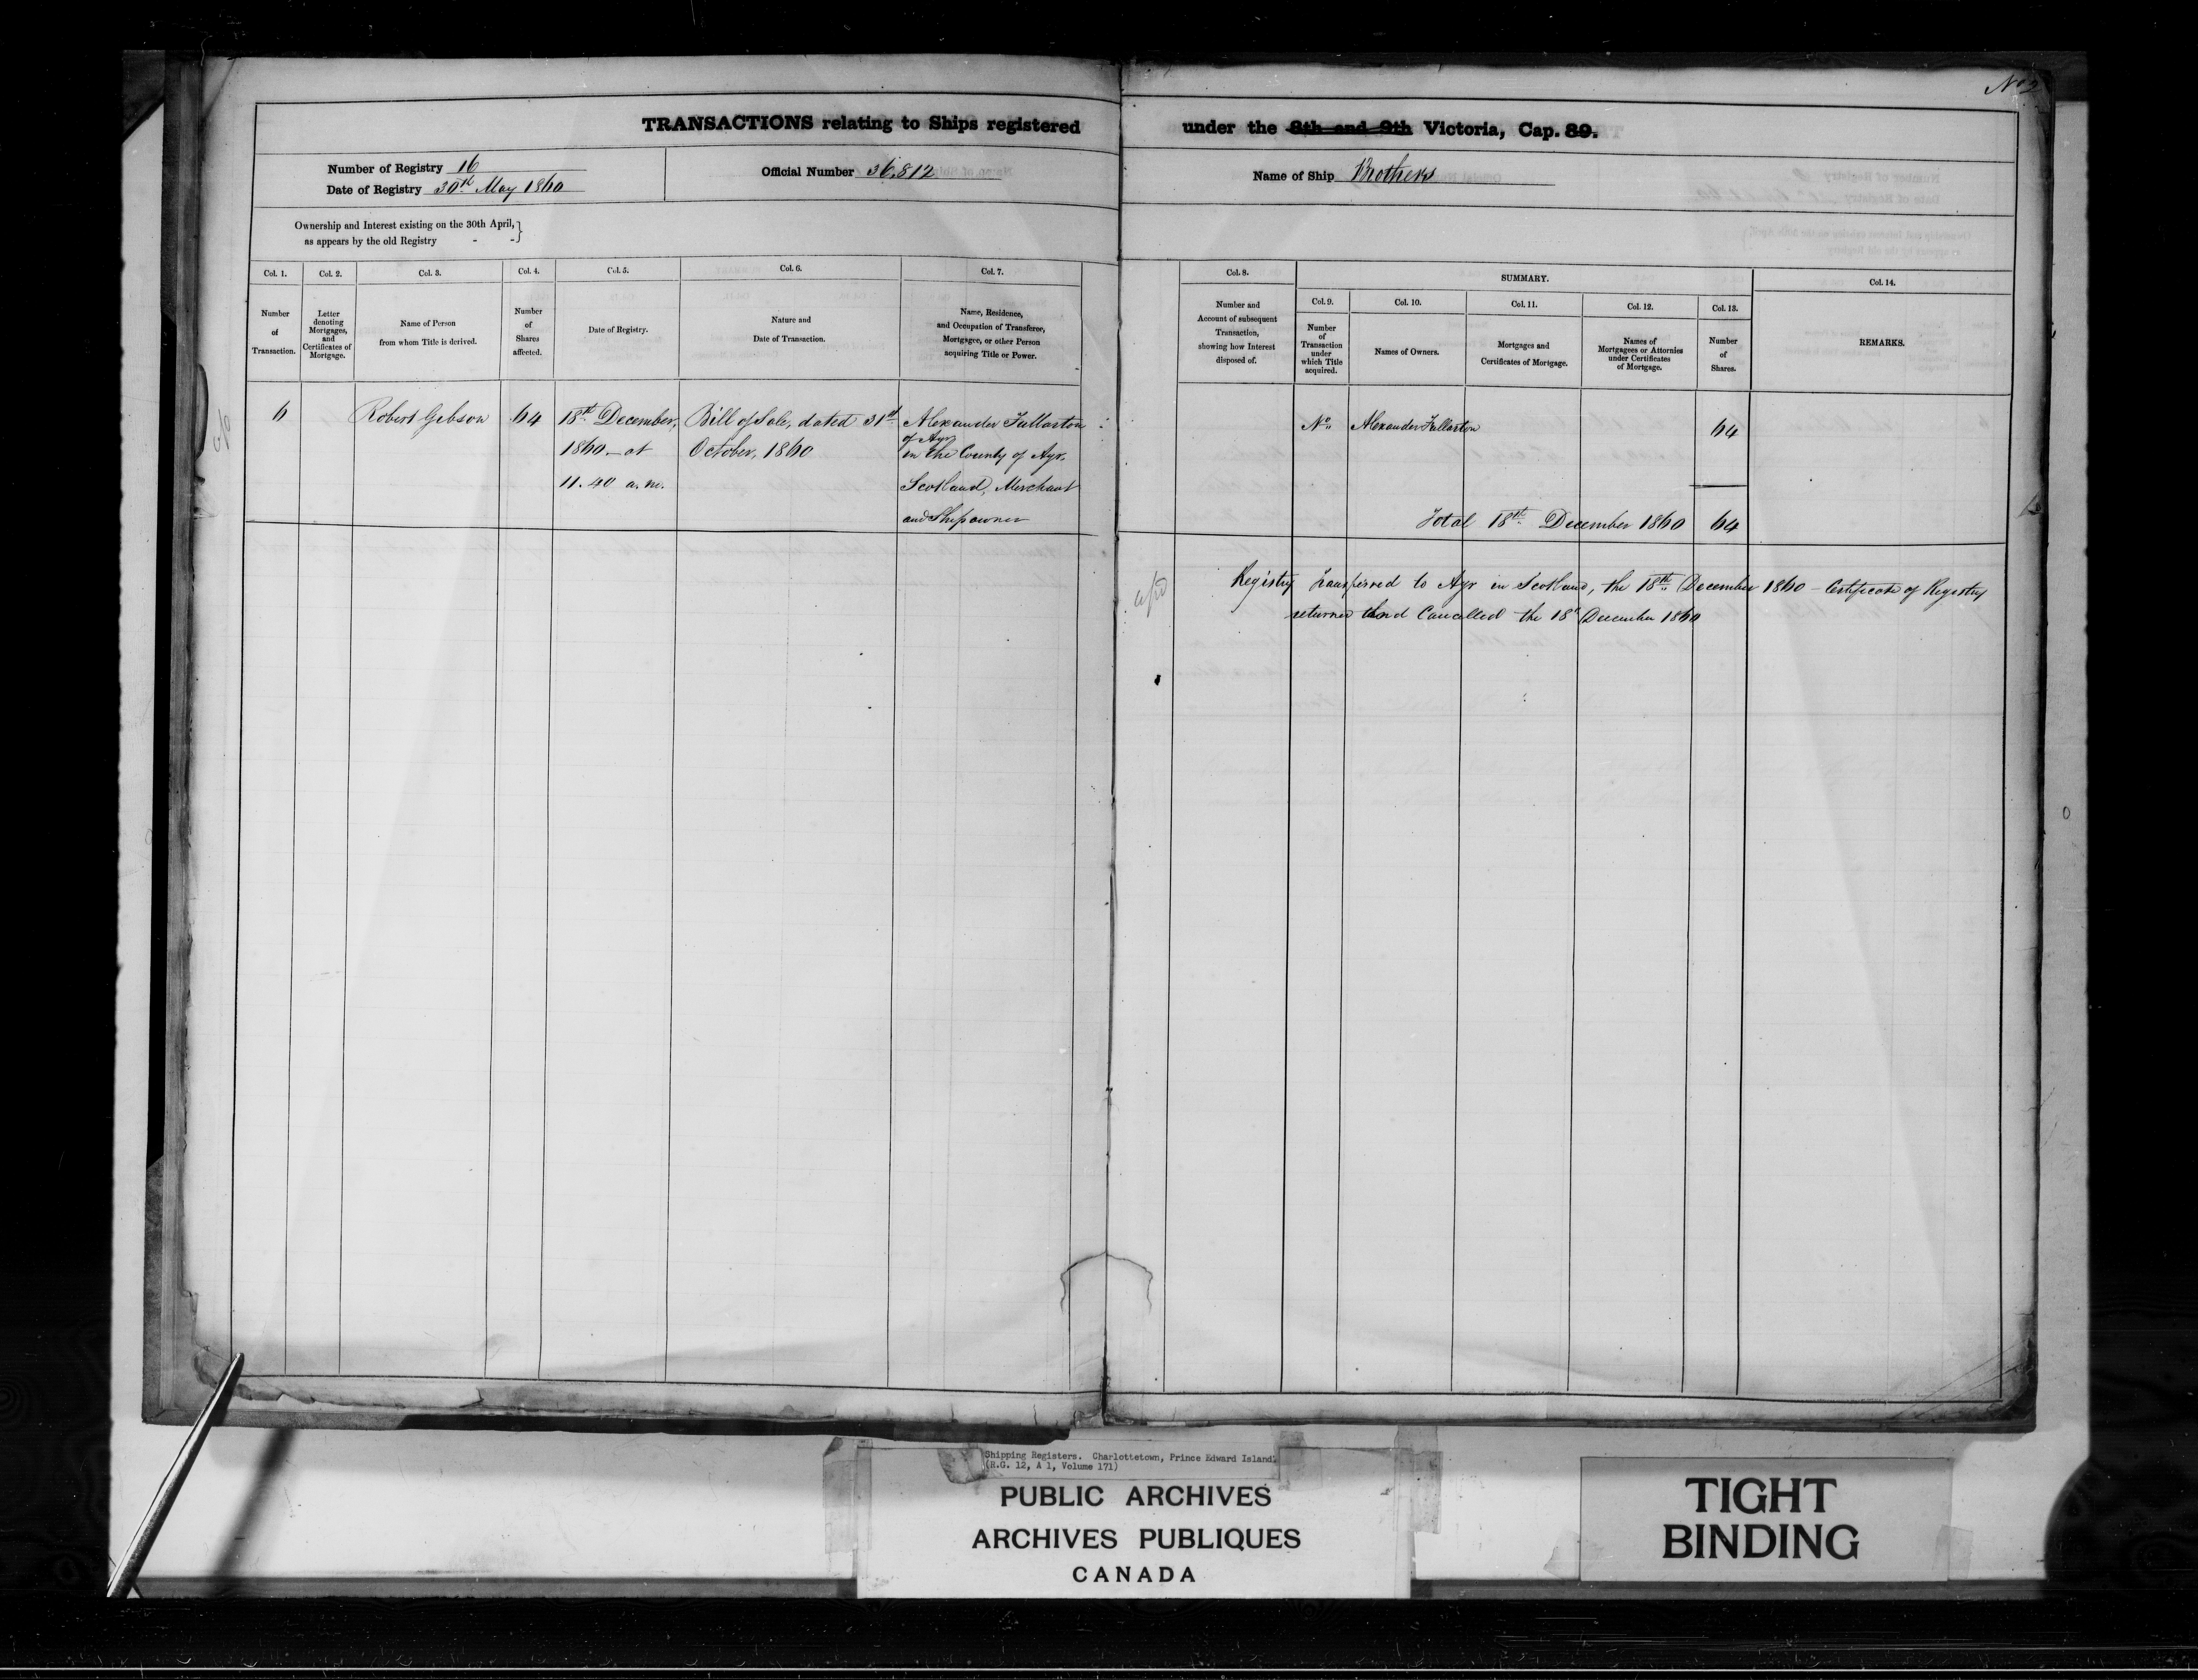 No 2
TRANSACTIONS relating to Ships registered under the 8th and 9th Victoria, Cap. 89.
Number of Registry 16
Date of Registry 30th May 1860
Official Number 36,812
Name of Ship Brothers
Ownership and Interest existing on the 30th April,
as appears by the old Registry - -
Col. 1.
Number
of
Transaction.
Col. 2.
Letter
denoting
Mortgages,
and
Certificates of
Mortgage.
Col. 3.
Name of Person
from whom Title is derived.
Col. 4.
Number
of
Shares
affected.
Col. 5.
Date of Registry.
Col. 6.
Nature and
Date of Transaction.
Col. 7.
Name, Residence,
and Occupation of Transferee,
Mortgagee, or other Person
acquiring Title or Power.
Col. 8.
Number and
Account of subsequent
Transaction,
showing how Interest
disposed of.
SUMMARY.
Col. 9.
Number
of
Transaction
under
which Title
acquired.
Col. 10.
Names of Owners.
Col. 11.
Mortgages and
Certificates of Mortgage.
Col. 12.
Names of
Mortgagees or Attornies
under Certificates
of Mortgage.
Col. 13.
Number
of
Shares.
Col. 14.
REMARKS.
6
Robert Gibson
64
18th December,
1860 - at
11.40 a.m.
Bill of Sale, dated 31st
October, 1860
Alexander Fullarton
of Ayr
in the County of Ayr,
Scotland, Merchant
and Shipowner
No
Alexander Fullarton
64
Total 18th December 1860 64
Registry transferred to Ayr in Scotland, the 18th December 1860 - Certificate of Registry
returned and Cancelled the 18th December 1860
Shipping Registers. Charlottetown, Prince Edward Island.
(R.G. 12, A 1, Volume 171)
PUBLIC ARCHIVES
ARCHIVES PUBLIQUES
CANADA
TIGHT
BINDING